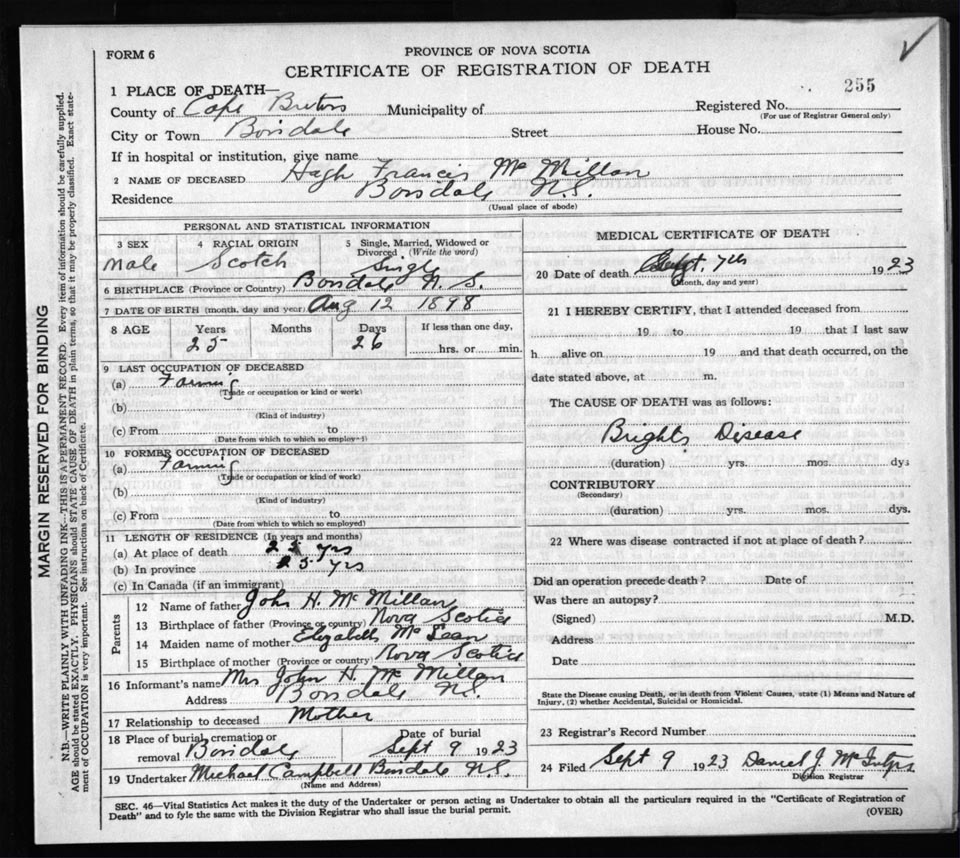 FORM 6
PROVINCE OF NOVA SCOTIA
CERTIFICATE OF REGISTRATION OF DEATH
255
1 PLACE OF DEATH—
County of Cape Breton Municipality of Registered No.
(For use of Registrar General only)
City or Town Boisdale Street House No.
If in hospital or institution, give name
2 NAME OF DECEASED Hugh Francis Mc Millan
Residence Boisdale N.S.
(Usual place of abode)
PERSONAL AND STATISTICAL INFORMATION
3 SEX
Male
4 RACIAL ORIGIN
Scotch
5 Single, Married, Widowed or
Divorced (Write the word)
Single
6 BIRTHPLACE (Province or Country) Boisdale N.S.
7 DATE OF BIRTH (month, day and year) Aug 12 1898
8 AGE Years Months Days If less than one day,
25 26 hrs. or min.
9 LAST OCCUPATION OF DECEASED
(a) Farming
(Trade or occupation or kind or work)
(b)
(Kind of industry)
(c) From to
(Date from which to which so employed)
10 FORMER OCCUPATION OF DECEASED
(a) Farming
(Trade or occupation or kind of work)
(b)
(Kind of industry)
(c) From to
(Date from which to which so employed)
11 LENGTH OF RESIDENCE (In years and months)
(a) At place of death 25 yrs
(b) In province 25 yrs
(c) In Canada (if an immigrant)
Parents
12 Name of father John H. Mc Millan
13 Birthplace of father (Province or country) Nova Scotia
14 Maiden name of mother Elizabeth Mc Lean
15 Birthplace of mother (Province or country) Nova Scotia
16 Informant's name Mrs John H. Mc Millan
Address Boisdale N.S.
17 Relationship to deceased Mother
18 Place of burial, cremation or
removal Boisdale
Date of burial
Sept 9 1923
19 Undertaker Michael Campbell Boisdale N.S.
(Name and Address)
MEDICAL CERTIFICATE OF DEATH
20 Date of death Sept. 7th 1923
(Month, day and year)
21 I HEREBY CERTIFY, that I attended deceased from
19 to 19 that I last saw
h alive on 19 and that death occurred, on the
date stated above, at m.
The CAUSE OF DEATH was as follows:
Brights Disease
(duration) yrs. mos. dys
CONTRIBUTORY
(Secondary)
(duration) yrs. mos. dys.
22 Where was disease contracted if not at place of death?
Did an operation precede death? Date of
Was there an autopsy?
(Signed) M.D.
Address
Date
State the Disease causing Death, or in death from Violent Causes, state (1) Means and Nature of
Injury, (2) whether Accidental, Suicidal or Homicidal.
23 Registrar's Record Number
24 Filed Sept 9 1923 Daniel J.
Division Registrar
SEC. 46—Vital Statistics Act makes it the duty of the Undertaker or person acting as Undertaker to obtain all the particulars required in the "Certificate of Registration of
Death" and to fyle the same with the Division Registrar who shall issue the burial permit.
(OVER)
MARGIN RESERVED FOR BINDING
N.B.—WRITE PLAINLY WITH UNFADING INK—THIS IS A PERMANENT RECORD. Every item of information should be carefully supplied.
AGE should be stated EXACTLY. PHYSICIANS should STATE CAUSE OF DEATH in plain terms, so that it may be properly classified. Exact state-
ment of OCCUPATION is very important. See instructions on back of Certificate.